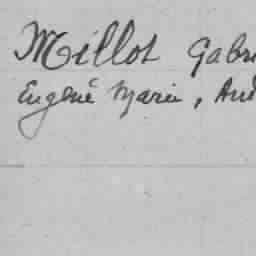 Millot Gabri
Eugéne Marie, And